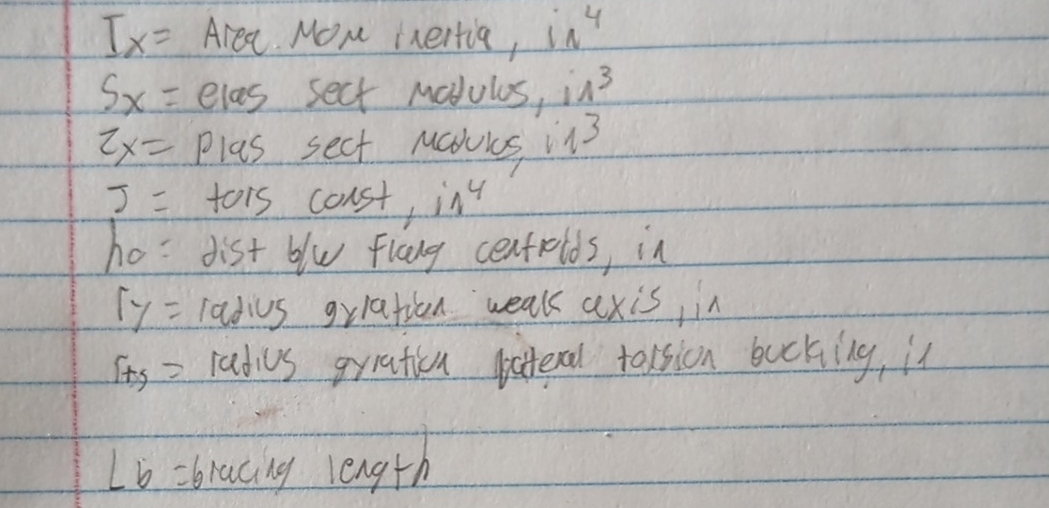 Ix = Area Mom inertia, in^4
Sx = elas sect modulus, in^3
Zx = plas sect modulus, in^3
J = tors const, in^4
ho = dist b/w flang centroids, in
ry = radius gyration weak axis, in
rts = radius gyration lateral torsion buckling, in
Lb = bracing length